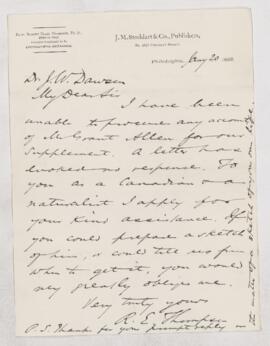 J. M. Stoddart & Co., Publishers,
Philadelphia, 188
Dr J. W. Dawson
My Dear Sir
I have been
unable to procure any account
of Mr Grant Allen for our
Supplement. A letter has
evoked no response. To
you as a Canadian & a
naturalist I apply for
your kind assistance. If
you could prepare a sketch
of him, or could tell us from
whom to get it, you would
very greatly oblige me.
Very truly yours
R. E. Thompson
P.S. Thanks for your prompt reply in
the matter of a sketch of